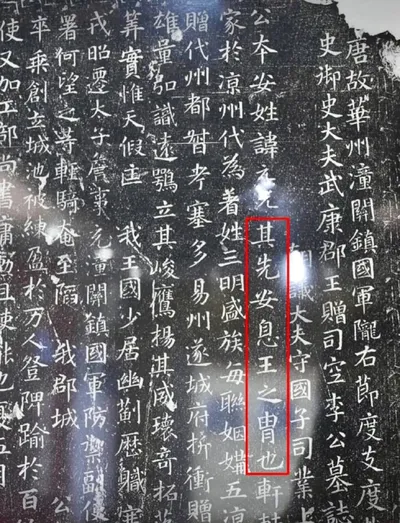 唐故華州潼關鎮國軍隴右節度支度
史御史大夫武康郡王贈司空李公墓誌
議大夫守國子司業上
公本安姓諱元光其先安息王之冑也軒
家於涼州代為著姓三明盛族每聯姻媾五涼
贈代州都督考塞多易州遂城府折衝贈
雄量弘識遠鶚立其峻鷹揚其威瓌奇拓
實惟天假 我王國少居幽薊歷職
戎昭遷太子詹事充潼關鎮國軍防禦副使
署何望之等輕騎奄至陷 我郡城 公
卒乘創立城池被練盈於万人登陴踰於百
使又加工部尚書庸勳且使能也夏五月